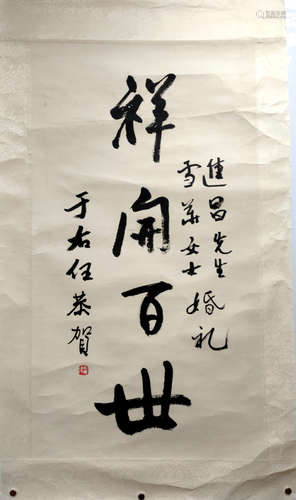 進昌先生
雪華女士婚礼
祥開百世
于右任恭賀